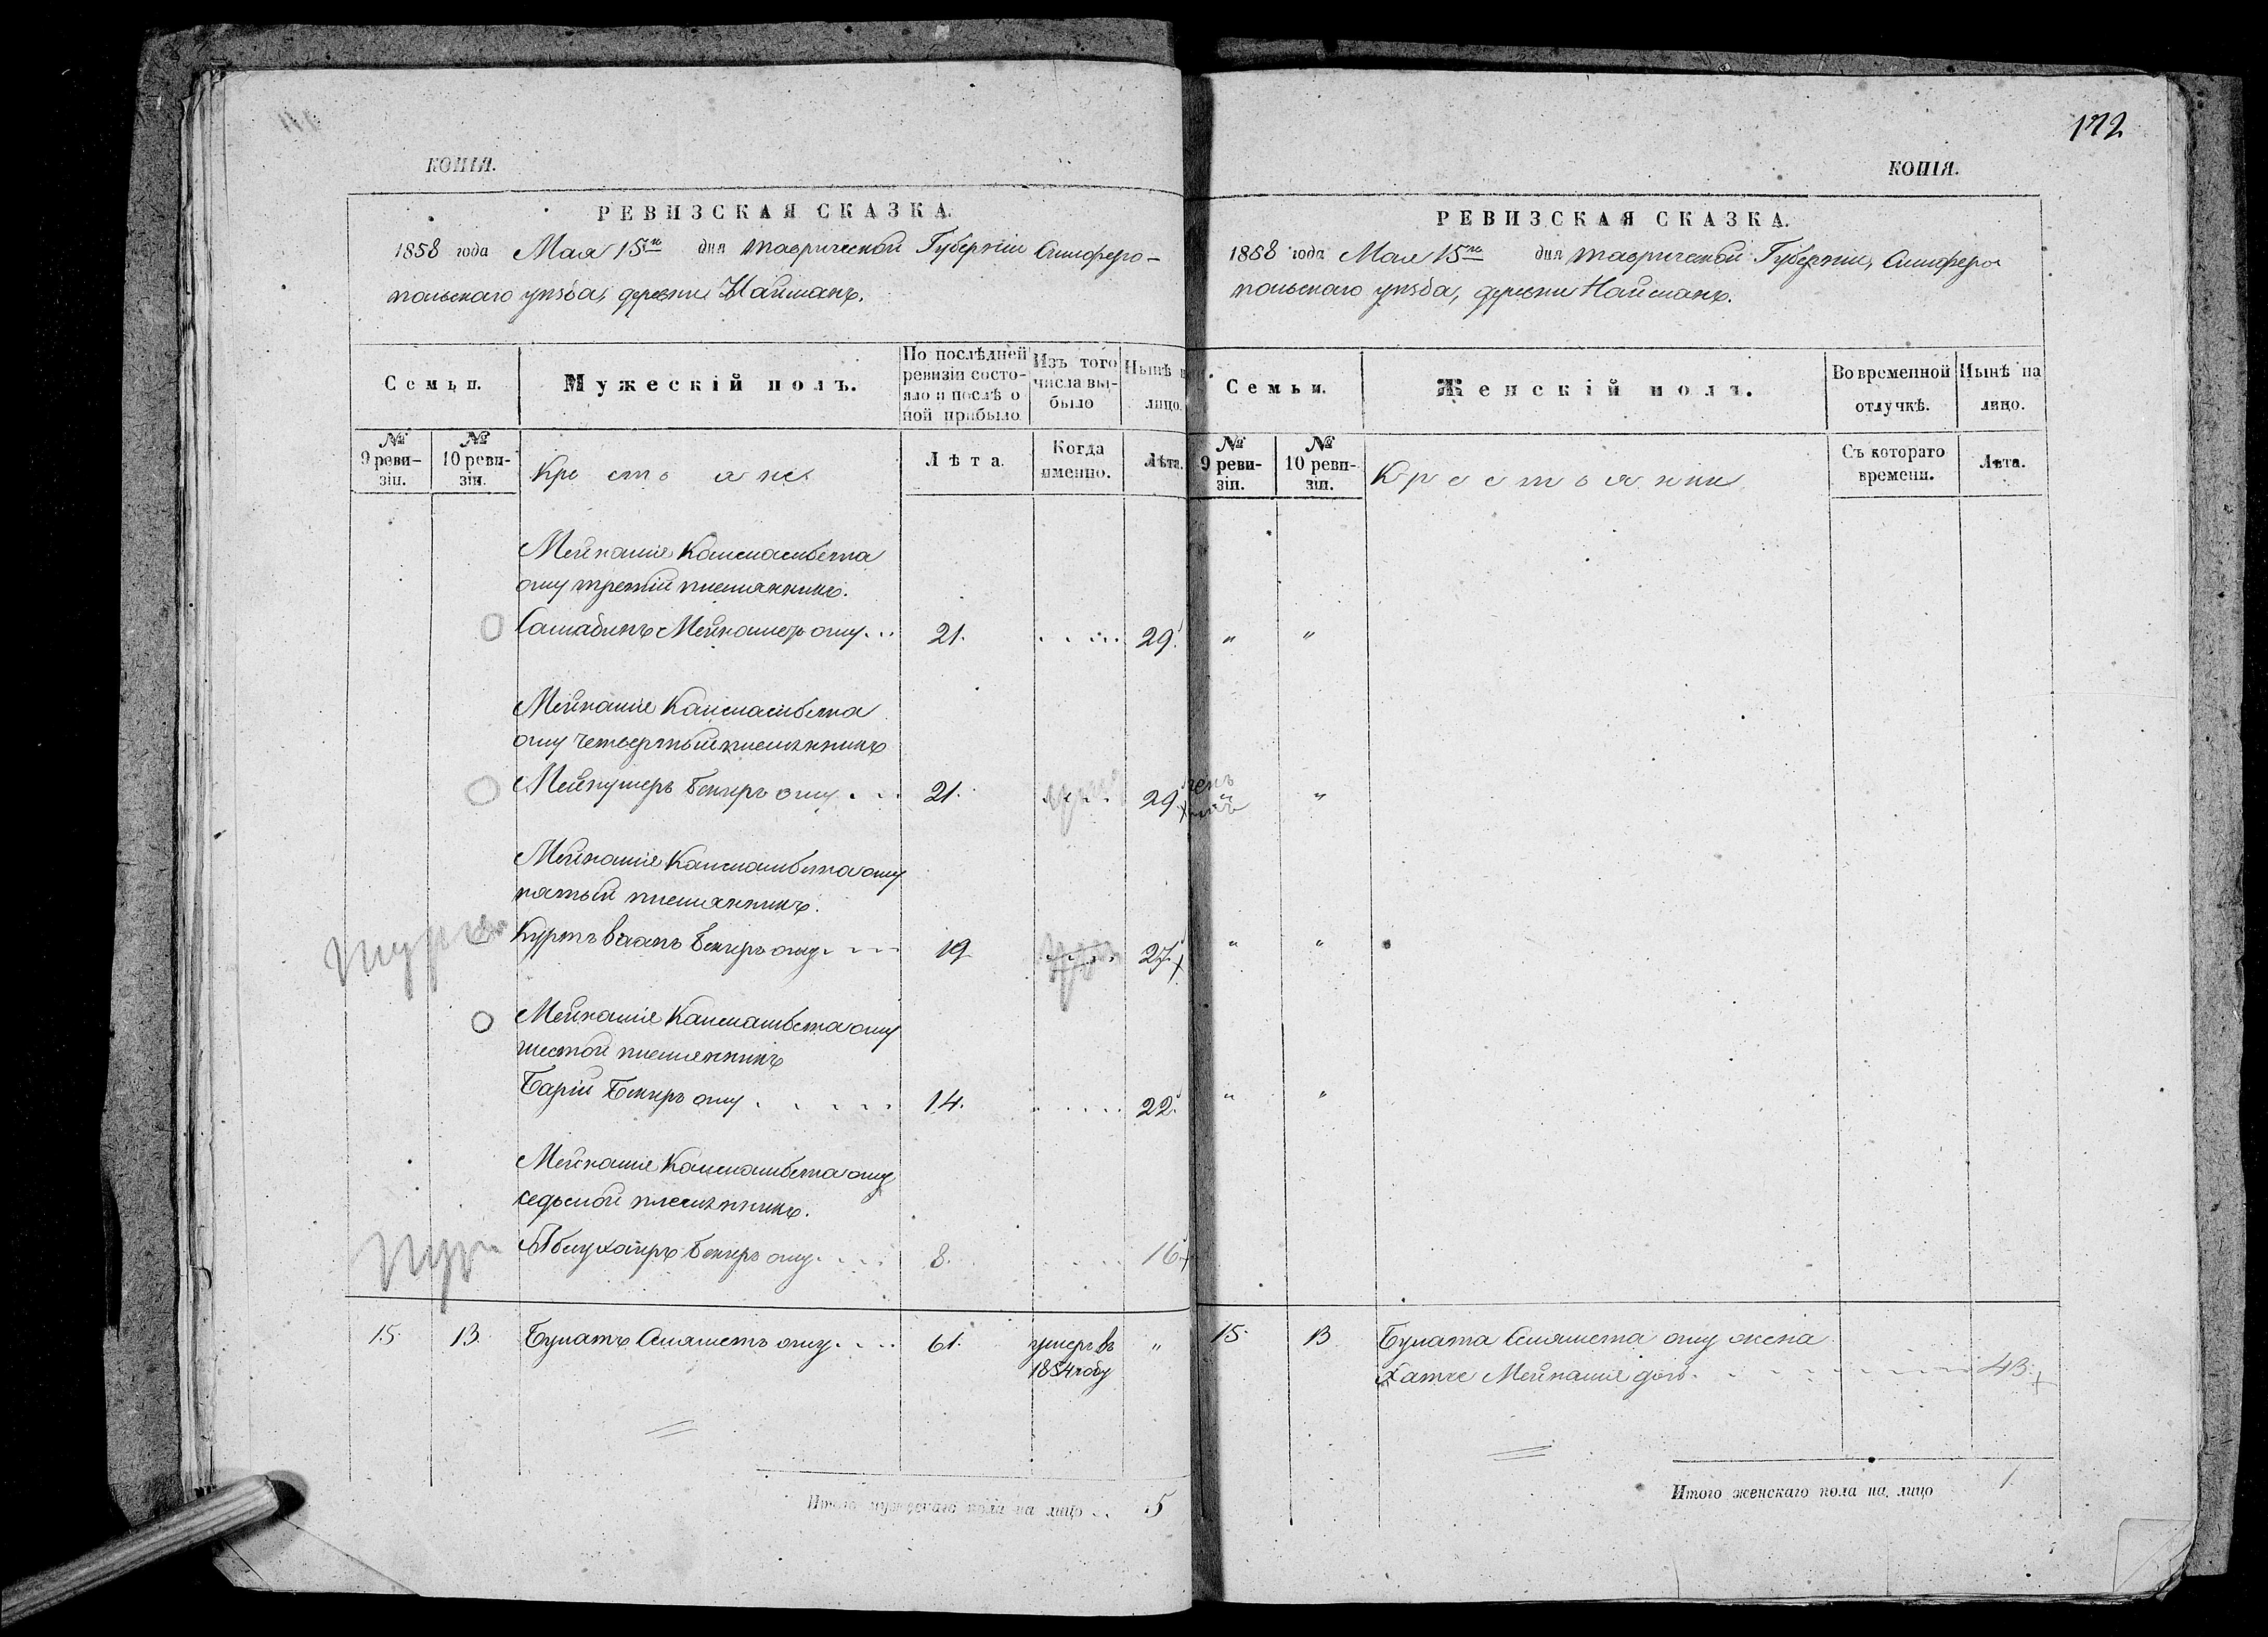 КОПІЯ.
РЕВИЗСКАЯ СКАЗКА.
1858 года Мая 15го дня Таврической Губерніи Симферо-
польскаго уѣзда, деревни Найманъ.
Семьи.
Мужескій полъ.
По послѣдней ревизіи состо-
яло и послѣ о
ной прибыло
Изъ того
числа вы-
было
Нынѣ н
лицо.
№
9 реви-
зіи.
№
10 реви-
зіи.
Крестьяне
Лѣта.
Когда
именно.
Лѣта.
Мейнаше Канмамбета
оглу третій племянникъ.
Мейнашетъ оглу... 21. ..... 29.
Мейнаше Канмамбета
оглу четвертый племянникъ
Бекиръ оглу... 21. 29.
Мейнаше Канмамбета оглу
пятый племянникъ.
Куртъ Бекиръ оглу.... 19 27.
Мейнаше Канмамбета оглу
шестой племянникъ
Барій Бекиръ оглу..... 14. ..... 22.
Мейнаше Канмамбета оглу
седьмой племянникъ.
Бекиръ оглу.... 8. ..... 16.
15. 13. Булатъ Сеяметъ оглу.... 61. умеръ въ „
1854 году
Итого мужескаго пола на лицо .. 5
172
КОПІЯ.
РЕВИЗСКАЯ СКАЗКА.
1858 года Мая 15го дня Таврической Губерніи, Симферо
польскаго уѣзда, деревни Найманъ.
Семьи.
Женскій полъ.
Во временной
отлучкѣ.
Нынѣ на
лицо.
№
9 реви-
зіи.
№
10 реви-
зіи.
Крестьянки
Съ котораго
времени.
Лѣта.
„ „
„ „
„ „
„ „
15. 13 Булата Сеямета оглу жена
Хатче Мейнаше дочь. 43.
Итого женскаго пола на лицо 1.